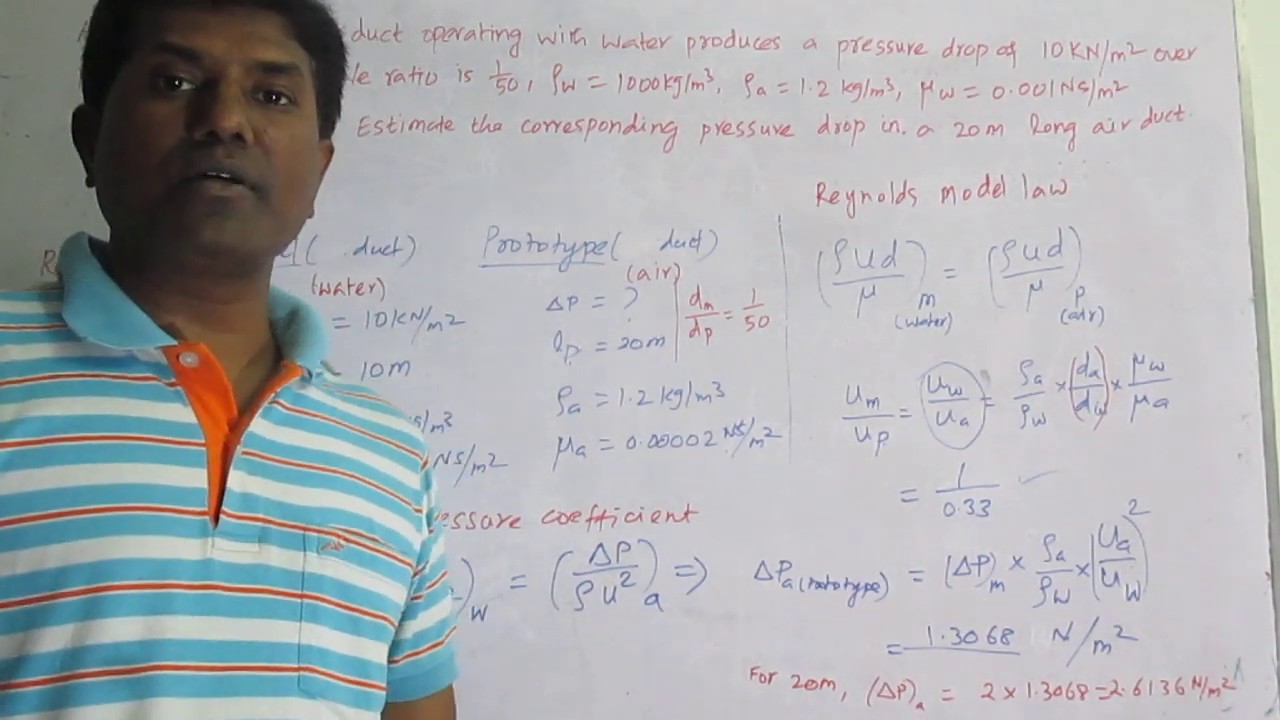 duct operating with water produces a pressure drop of 10KN/m² over
le ratio is 1/50, ρw = 1000kg/m³, ρa = 1.2 kg/m³, μw = 0.001NS/m²
Estimate the corresponding pressure drop in. a 20m long air duct.
Reynolds model law
( duct)
(water)
= 10KN/m²
10m
/m³
NS/m²
Prototype( duct)
(air)
ΔP = ?
lp = 20m
dm/dp = 1/50
ρa = 1.2 kg/m³
μa = 0.00002 NS/m²
(ρud/μ)m (water) = (ρud/μ)p (air)
um/up = uw/ua = ρa/ρw × (da/dw) × μw/μa
= 1/0.33
essure coefficient
)w = (ΔP/ρu²)a ⇒
ΔPa(prototype) = (ΔP)m × ρa/ρw × (ua/uw)²
= 1.3068 N/m²
For 20m, (ΔP)a = 2 × 1.3068 = 2.6136 N/m²